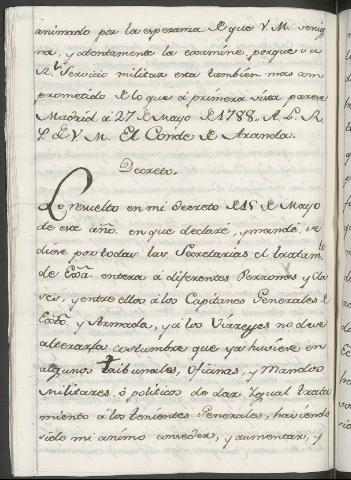 animado por la esperanza de que V. M. venig
na, y atentamente la examine, porque su
Rl. Servicio militar esta tambien mas com
prometido de lo que á primera vista parece
Madrid á 27 de Mayo de 1788. A. L. R.
P. de V. M. El Conde de Aranda.
Decreto.
Lo resuelto en mi decreto de 16 de Mayo
de este año, en que declaré, y mandé, se
diese por todas las Secretarias el tratamto.
de Exa. entera á diferentes Personas y Cla
ses, y entre ellos á los Capitanes Generales de
Exto. y Armada, y á los Virreyes no deve
alterar la costumbre que ya huviese en
algunos tribunales, oficinas, y Mandos
Militares, ó politicos de dar Igual trata
miento á los tenientes Generales, haviendo
sido mi animo conceder, y aumentar, y